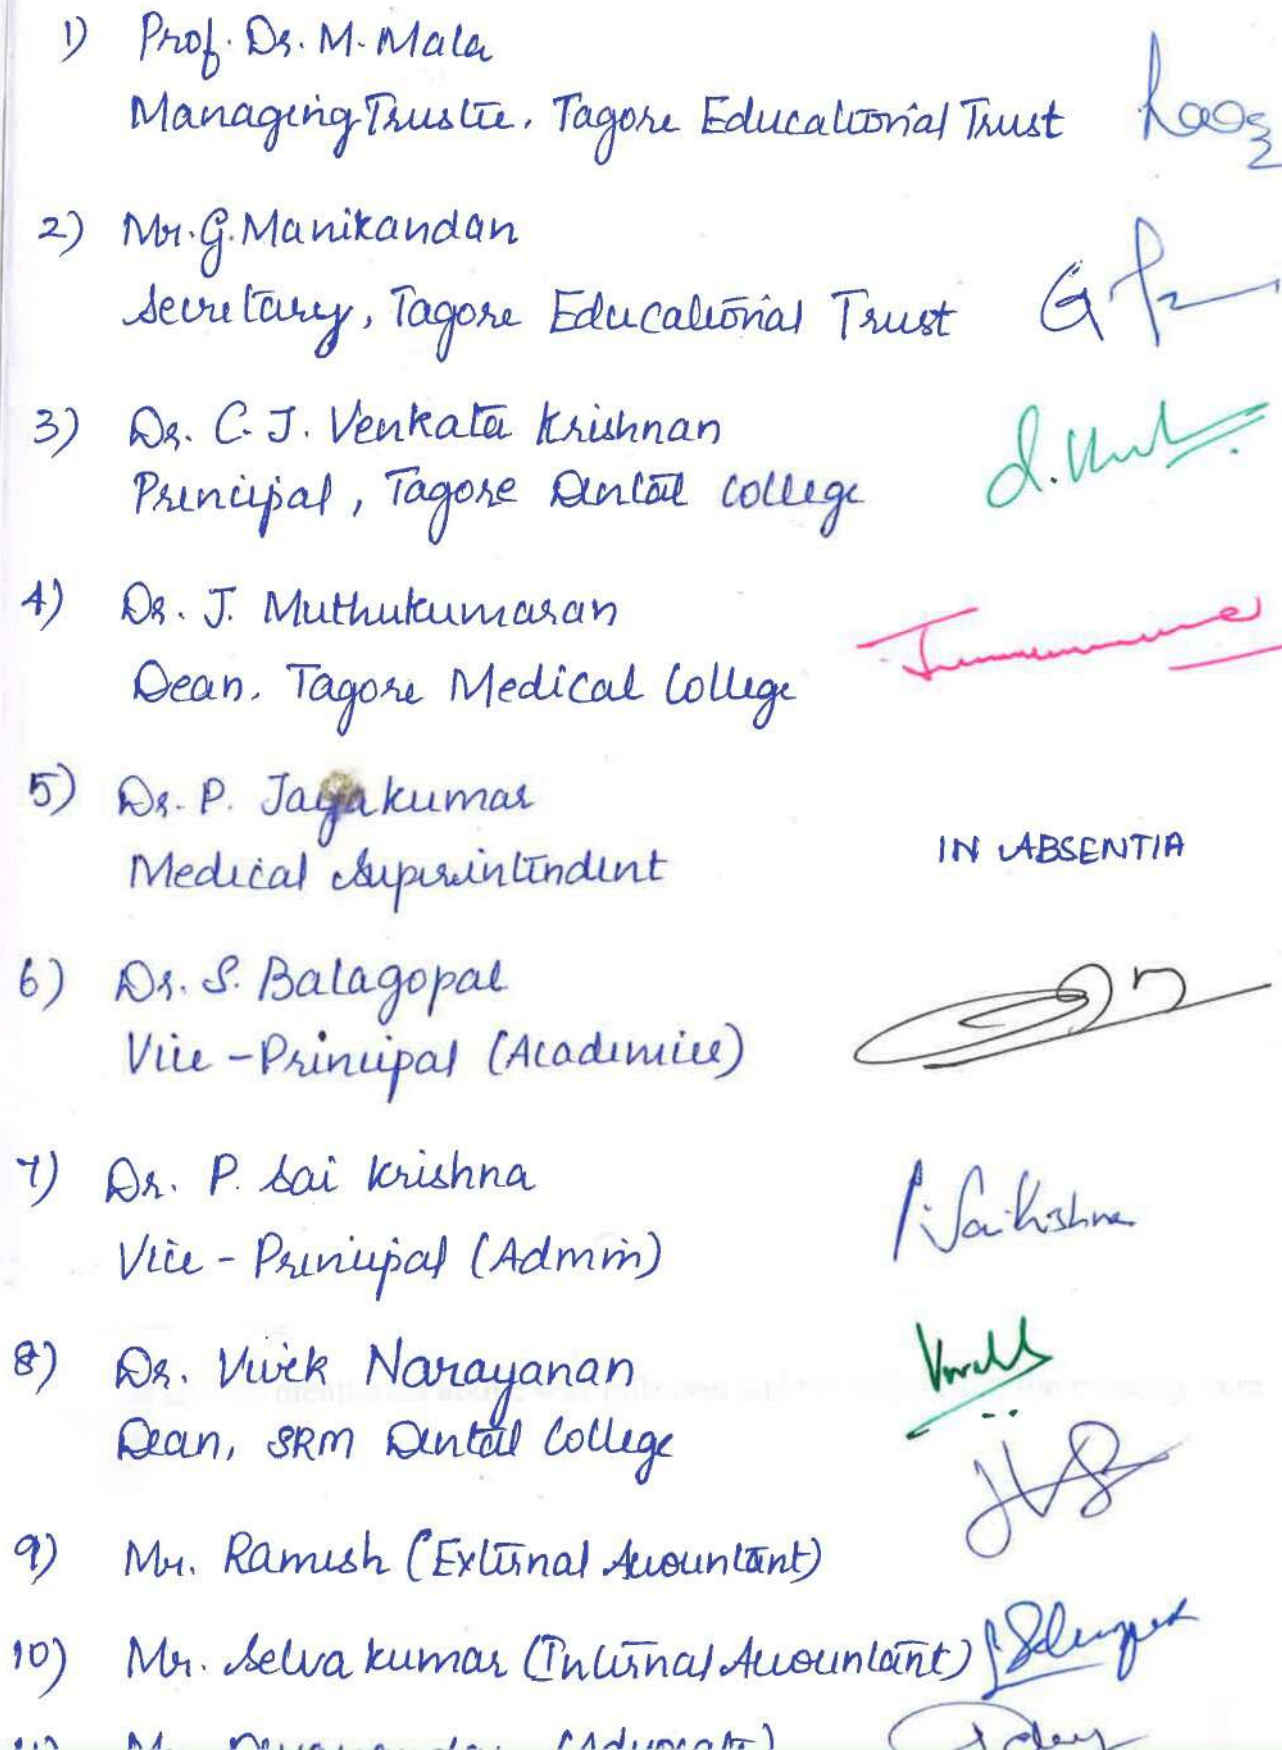 1) Prof. Dr. M. Mala
Managing Trustee, Tagore Educational Trust
2) Mr. G. Manikandan
Secretary, Tagore Educational Trust
3) Dr. C. J. Venkata Krishnan
Principal, Tagore Dental College
4) Dr. J. Muthukumaran
Dean, Tagore Medical College
5) Dr. P. Jayakumar
Medical Superintendent
IN ABSENTIA
6) Dr. S. Balagopal
Vice - Principal (Academics)
7) Dr. P. Sai Krishna
P. Saikishna
Vice - Principal (Admin)
8) Dr. Vivek Narayanan
Dean, SRM Dental College
9) Mr. Ramesh (External Accountant)
10) Mr. Selva Kumar (Internal Accountant)
11) Mr. (Advocate)